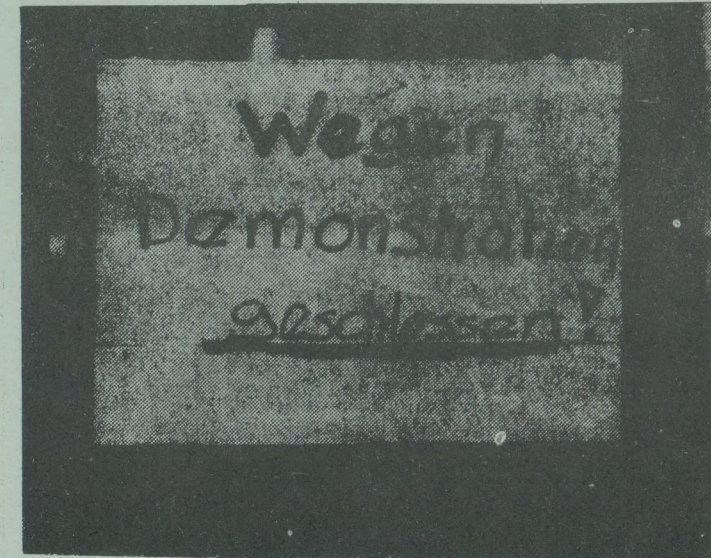 Wegen
Demonstration
geschlossen!